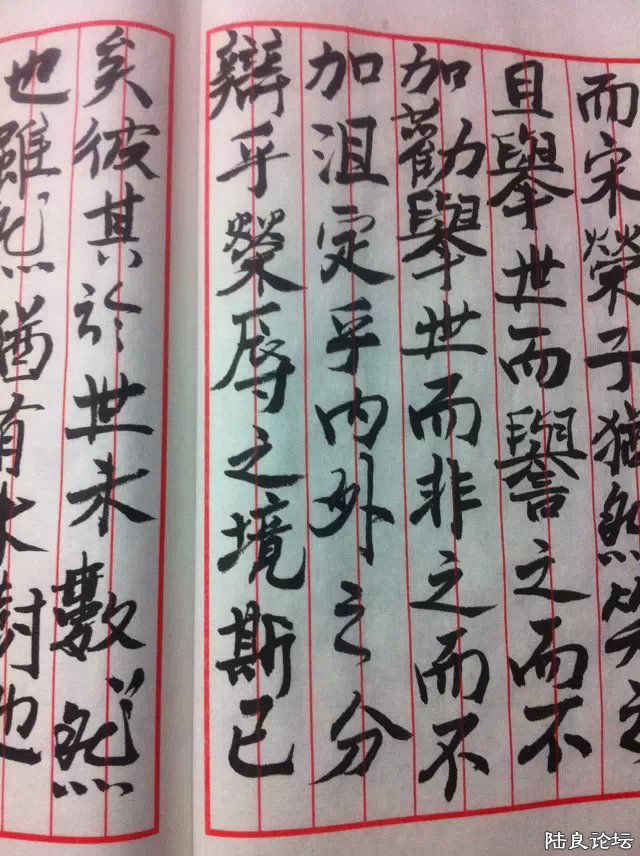 而宋榮子猶然笑之
且舉世而譽之而不
加勸舉世而非之而不
加沮定乎內外之分
辯乎榮辱之境斯已
矣彼其於世未數然
也雖然猶有未樹也
陆良论坛